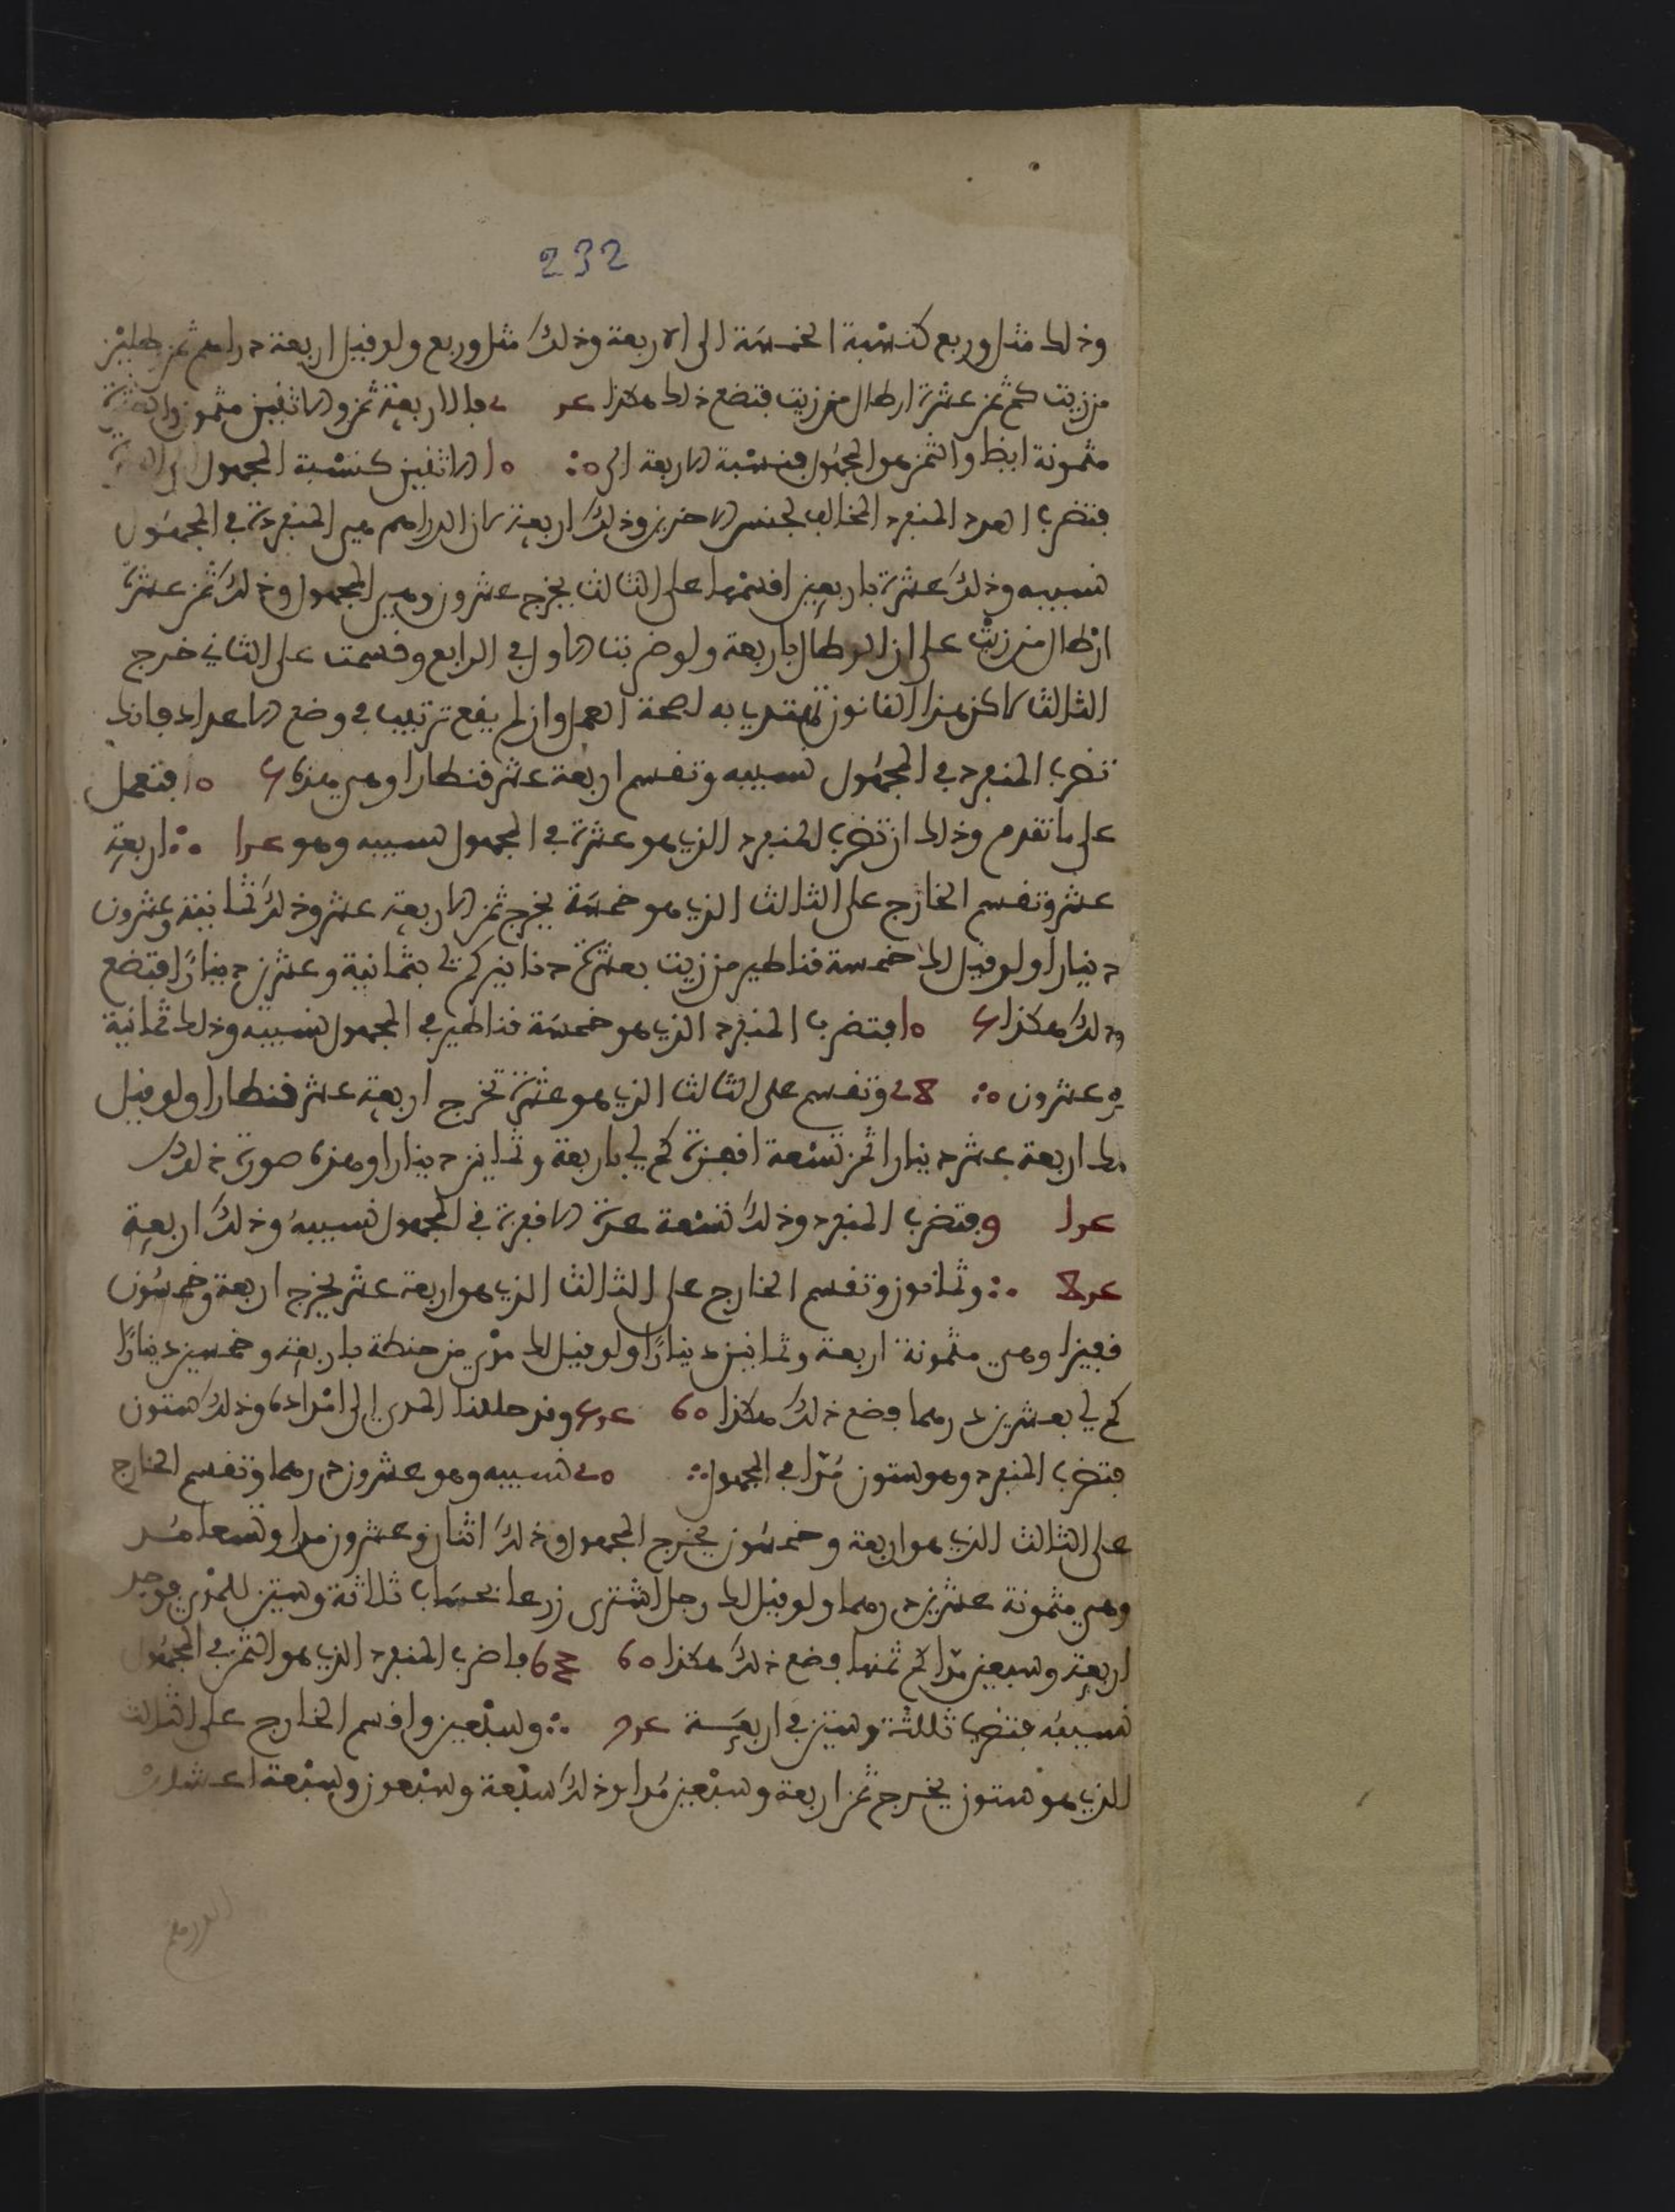 232
وذلك مثل وربع كنسبة الخمسة الى الاربعة وذلك مثل وربع ولو قيل اربعة دراهم ثمن رطلين
من زيت كم ثمن عشرة ارطال من زيت فتضع ذلك هكذا فالاربعة ثمن والاثنين مثمون والعشرة
مثمونة ايظا والثمن هو المجهول فنسبة الاربعة الى الاثنين كنسبة المجهول الى
فتضرب العدد المنفرد المخالف لجنس الاخرين وذلك اربعة لان الدراهم هي المنفردة في المجهول
نسيبه وذلك عشرة باربعين اقسمها على الثالث يخرج عشرون وهي المجهول وذلك ثمن عشرة
ارطال من زيت على ان الرطل باربعة ولو ضربت الاول في الرابع وقسمت على الثاني خرج
الثالث لاكن هذا القانون تهتدي به لصحة العمل وان لم يقع ترتيب في وضع الاعداد فانك
تضرب المنفرد في المجهول نسيبه وتقسم اربعة عشر قنطارا وهي هذه فتعمل
على ما تقدم وذلك ان تضرب المنفرد الذي هو عشرة في المجهول نسيبه وهو اربعة
عشر وتقسم الخارج على الثالث الذي هو خمسة يخرج ثمن الاربعة عشر وذلك ثمانية وعشرون
دينارا ولو قيل لك خمسة قناطير من زيت بعشرة دنانير كم لي بثمانية وعشرين دينارا فتضع
ذلك هكذا فتضرب المنفرد الذي هو خمسة قناطير في المجهول نسيبه وذلك ثمانية
وعشرون وتقسم على الثالث الذي هو عشرة تخرج اربعة عشر قنطارا ولو قيل
لك اربعة عشر دينارا ثمن تسعة اقفزة كم لي باربعة وثمانين دينارا وهذه صورة ذلك
فتضرب المنفرد وذلك تسعة عدة الاقفزة في المجهول نسيبه وذلك اربعة
وثمانون وتقسم الخارج على الثالث الذي هو اربعة عشر يخرج اربعة وخمسون
قفيزا وهي مثمونة اربعة وثمانين دينارا ولو قيل لك مدي من حنطة باربعة وخمسين دينارا
كم لي بعشرين درهما فضع ذلك هكذا 60 وقد حللنا المدي الى امداده وذلك ستون
فتضرب المنفرد وهو ستون مدا في المجهول نسيبه وهو عشرون درهما وتقسم الخارج
على الثالث الذي هو اربعة وخمسون يخرج المجهول وذلك اثنان وعشرون مدا وتسعا مد
وهي مثمونة عشرين درهما ولو قيل لك رجل اشترى زرعا بحساب ثلاثة وستين للمدي فوجد
اربعة وسبعين مدا كم ثمنها فضع ذلك هكذا 60 فاضرب المنفرد الذي هو الثمن في المجهول
نسيبه فتضرب ثلثة وستين في اربعة وسبعين واقسم الخارج على الثالث
الذي هو ستون يخرج ثمن اربعة وسبعين مدا وذلك سبعة وسبعون وسبعة اعشار